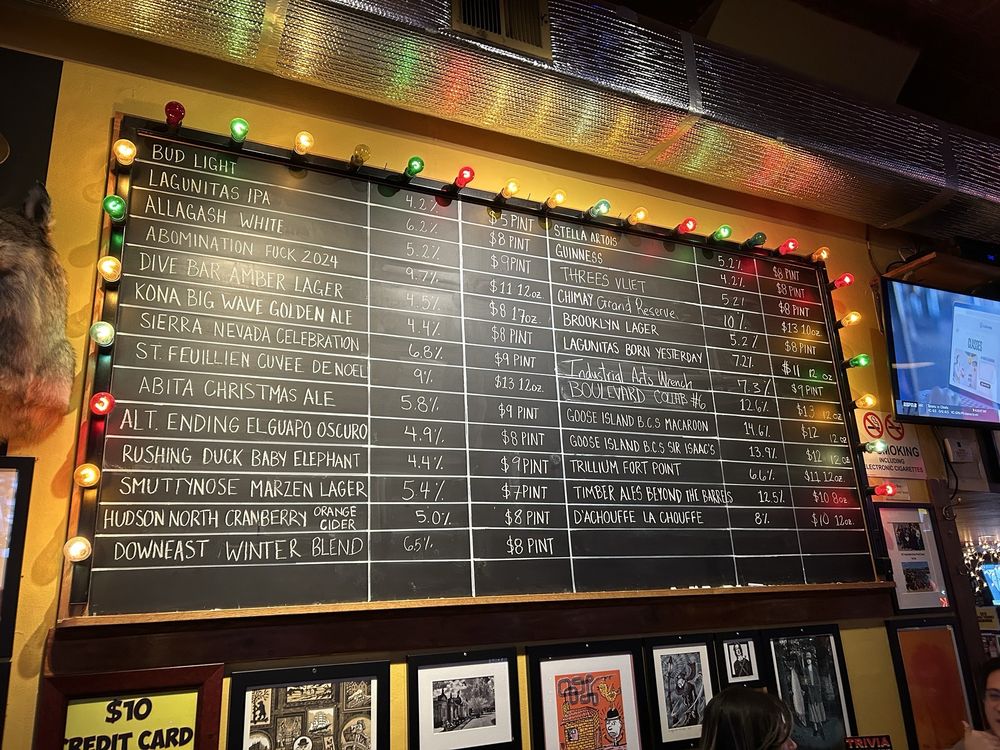 BUD LIGHT 4.2% $5 PINT
LAGUNITAS IPA 6.2% $8 PINT
ALLAGASH WHITE 5.2% $9 PINT
ABOMINATION FUCK 2024 9.7% $11 12oz.
DIVE BAR AMBER LAGER 4.5% $8 17oz.
KONA BIG WAVE GOLDEN ALE 4.4% $8 PINT
SIERRA NEVADA CELEBRATION 6.8% $9 PINT
ST. FEUILLIEN CUVEE DE NOEL 9% $13 12oz
ABITA CHRISTMAS ALE 5.8% $9 PINT
ALT. ENDING EL GUAPO OSCURO 4.9% $8 PINT
RUSHING DUCK BABY ELEPHANT 4.4% $9 PINT
SMUTTYNOSE MARZEN LAGER 5.4% $7 PINT
HUDSON NORTH CRANBERRY ORANGE CIDER 5.0% $8 PINT
DOWNEAST WINTER BLEND 6.5% $8 PINT
STELLA ARTOIS 5.2% $8 PINT
GUINNESS 4.2% $8 PINT
THREES VLIET 5.2% $8 PINT
CHIMAY Grand Reserve 10% $13 10oz
BROOKLYN LAGER 5.2% $8 PINT
LAGUNITAS BORN YESTERDAY 7.2% $11 12 oz
Industrial Arts Wrench 7.3% $9 PINT
BOULEVARD COLLAB #6 12.6% 12 oz
GOOSE ISLAND B.C.S MACAROON 14.6% $12 12 oz
GOOSE ISLAND B.C.S SIR ISAAC'S 13.9% $12 12 oz
TRILLIUM FORT POINT 6.6% $11 12oz
TIMBER ALES BEYOND THE BARRELS 12.5% $10 8oz
D'ACHOUFFE LA CHOUFFE 8% $10 12oz.
SMOKING
INCLUDING
ELECTRONIC CIGARETTES
$10
CREDIT CARD
TRIVIA